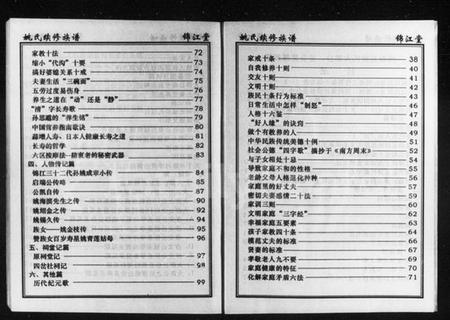 姚氏续修族谱 锦江堂
家教十法 72
缩小“代沟”十要 73
搞好婆媳关系十戒 74
夫妻生活“三碗面” 75
五劳过度易伤身 76
养生之道在“动”还是“静” 77
“清”字长寿歌 78
孙思邈的“养生铭” 79
中国营养指南歌诀 80
日本人健康长寿之道 81
长寿的哲学 82
四、人物传记篇
锦江三十二代孙姚或章小传 84
启瑞公传略 85
公凯自传 87
姚海滨先生之传 90
姚炳金之传 92
姚锡久传 94
族女——姚金枝传 95
赞族女百岁寿星姚青莲姑母 96
五、祠堂记篇
原祠堂记 97
四岔社祠记 98
六、其他篇
历代纪元歌 99
姚氏续修族谱 锦江堂
家戒十条 38
自我修养十则 40
交友十则 41
文明十则 42
族民十条行为标准 43
日常生活中怎样“制怒” 46
人格十六鉴 47
“好人缘”的诀窍 48
做个有教养的人 49
中华民族传统美德十例 51
社会公德“四字歌” 摘抄于《南方周末》 52
与子女相处十忌 54
导致家庭不和的性格 55
老龄父母人格退化种种 56
家庭里的好丈夫 57
密切夫妻感情二十法 58
家训三则 59
文明家庭“三字经” 61
幸福家庭五要素 63
孩子家教四十条 64
模范丈夫的标准 66
贤妻的标准 67
孝敬老人九不要 69
家庭健康的特征 70
化解家庭矛盾六法 71